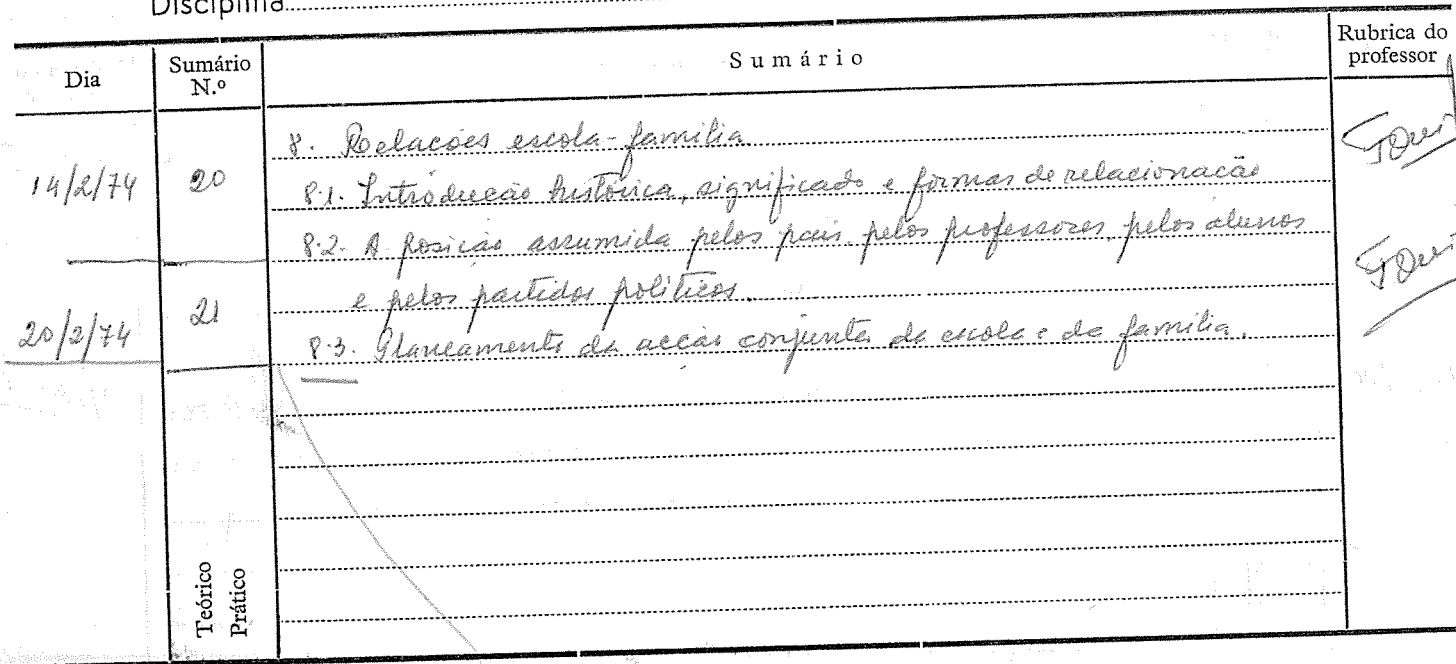 Disciplina
Dia
Sumário N.º
Sumário
Rubrica do professor
8. Relações escola-família
14/2/74 20 8.1. Introdução histórica, significado e formas de relacionação
8.2. A posição assumida pelos pais, pelos professores, pelos alunos
e pelos partidos políticos.
20/2/74 21
8.3. Planeamento da acção conjunta da escola e da família.
Teórico
Prático